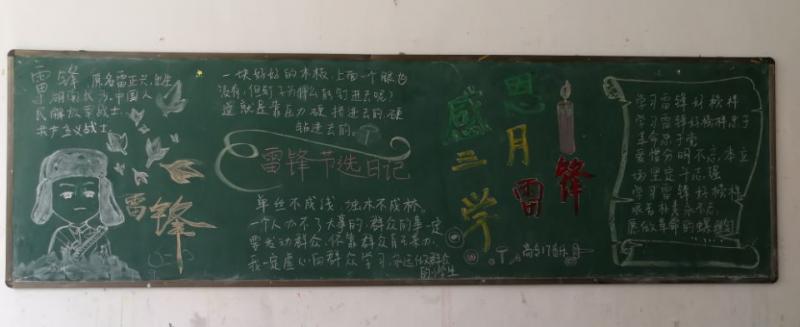 雷锋 原名雷正兴,出生
于湖南长沙,中国人
民解放军战士
共产主义战士
雷锋
一块好好的木板,上面一个眼也
没有,但钉子为什么能钉进去呢?
这就是靠压力硬挤进去的,硬
钻进去的。
雷锋节选日记
单丝不成线,独木不成林。
一个人办不了大事的,群众的事一定
要发动群众,依靠群众自己来办,
我一定虚心向群众学习,永远做群众
的小学生
感恩
三月
学雷锋
学习雷锋好榜样
学习雷锋好榜样忠于
革命忠于党
爱憎分明不忘本立
场坚定斗志强
学习雷锋好榜样
愿做革命的螺丝钉